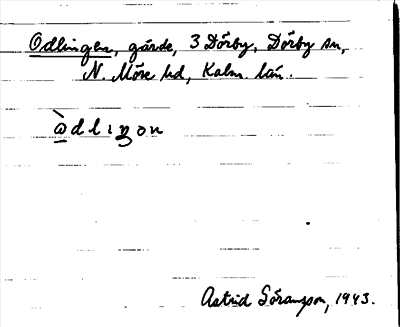 Odlingen, gärde, 3 Dörby, Dörby sn,
N. Möre hd, Kalm. län.
òdlıŋon
Astrid Göransson, 1943.